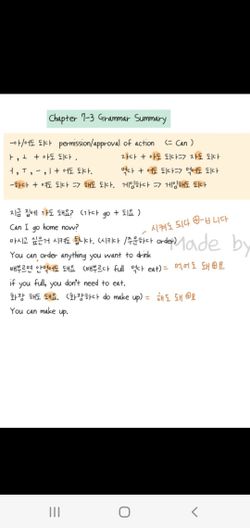 Chapter 7-3 Grammar Summary
-아/어도 되다 permission/approval of action (= Can)
ㅏ, ㅗ + 아도 되다. 자다 + 아도 되다=> 자도 되다
ㅓ, ㅜ, ㅡ, ㅣ + 어도 되다. 먹다 + 어도 되다=> 먹어도 되다
-하다 + 해도 되다 => 해도 되다. 게임하다 => 게임해도 되다
지금 집에 가도 돼요? (가다 go + 되요)
Can I go home now?
시켜도 되다 ⊕-ㅂ니다
마시고 싶은거 시켜도 됩니다. (시키다 /주문하다 order)
Made by
You can order anything you want to drink
배부르면 안먹어도 돼요 (배부르다 full 먹다 eat) = 먹어도 돼⊕요
if you full, you don't need to eat.
화장 해도 돼요. (화장하다 do make up) = 해도 돼 ⊕요
You can make up.